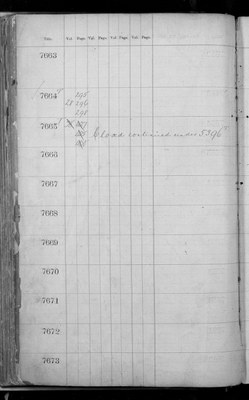 Nos. Vol. Page. Vol. Page. Vol. Page. Vol. Page.
7663
7664
295
25 296
298
7665
Closed continued under 5396
7666
7667
7668
7669
7670
7671
7672
7673